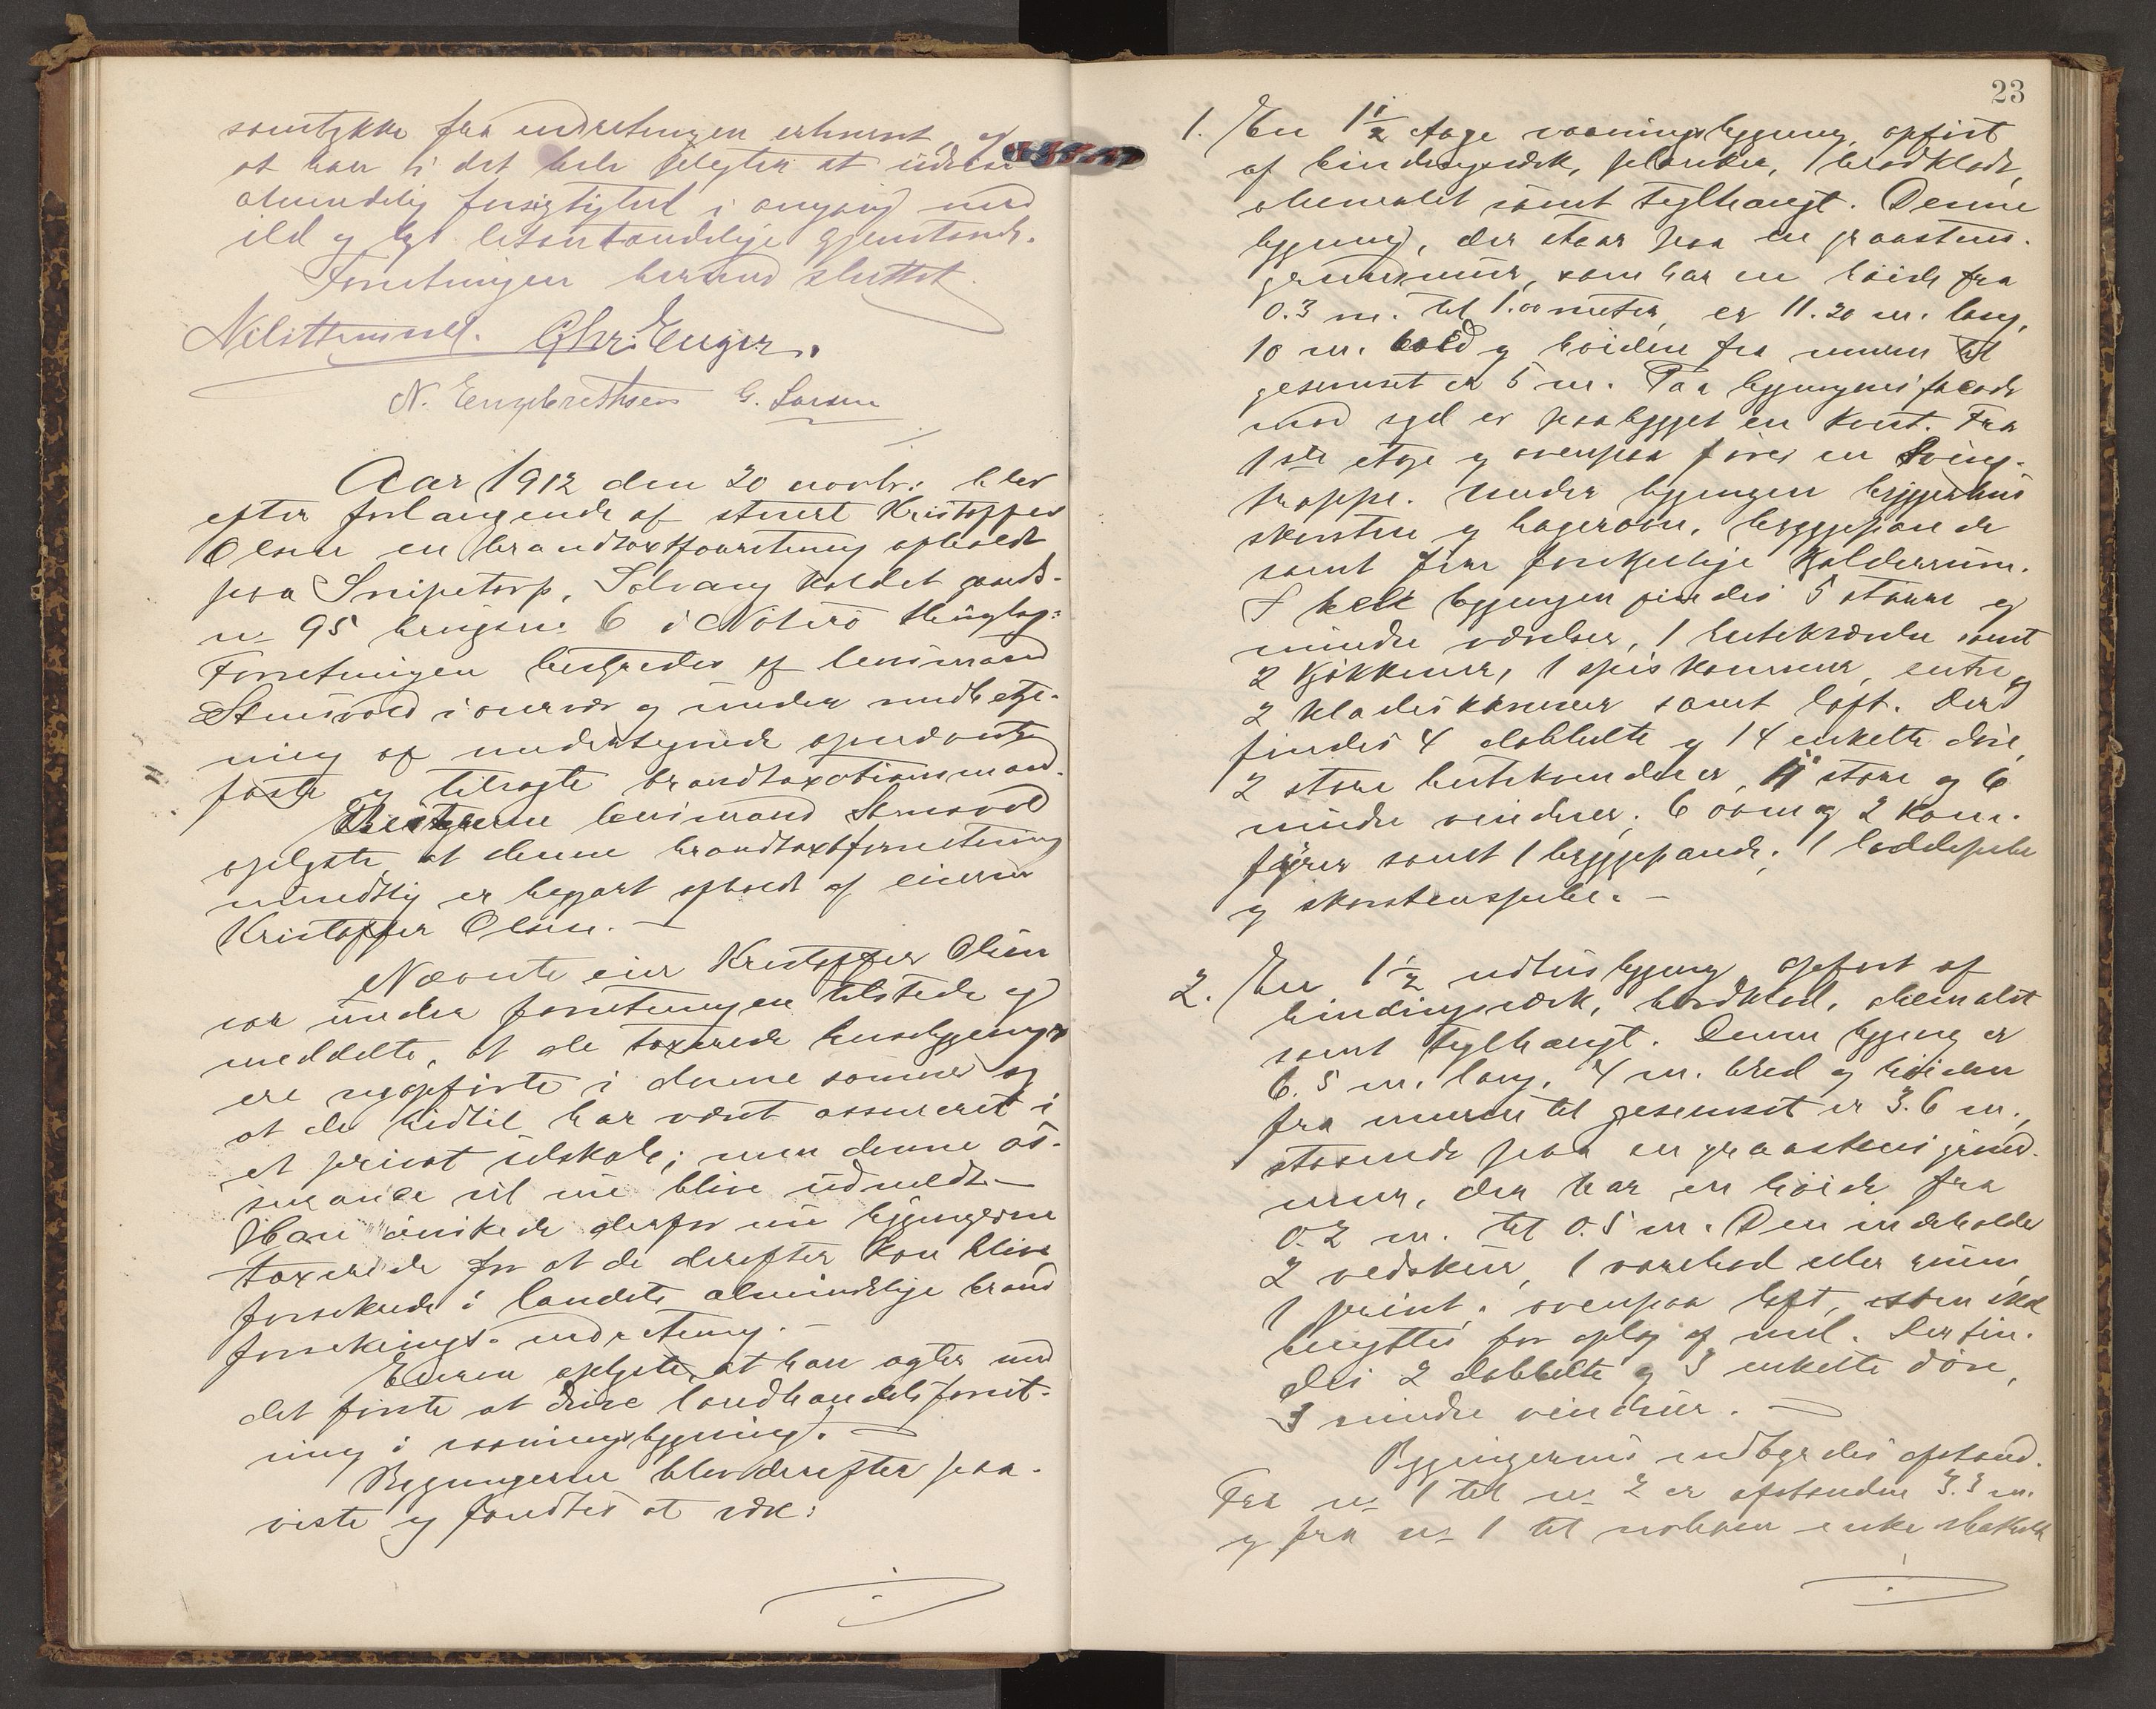 samtykke fra indretningen erhvervt, og
at han i det hele pligter at udvise
almindelig forsigtighed i omgang med
ild og let antændelige gjenstande.
Forretningen hermed sluttet.
Chr. Enger.
N. Engebrethsen G. Larsen
Aar 1912 den 20 novbr: blev
efter forlangende af stuert Kristoffer
Olsen en brandtaxtforretning afholdt
paa Snipetorp, Solvang kaldet gaards-
n 95 brugsn: 6 i Nøterø thinglag:
Forretningen bestyredes af lensmand
Stensvold i overvær og under medbetje-
ning af undertegnede opnævnte
faste og tilsagte brandtaxationsmænd.
Bestyreren lensmand Stensvold
oplyste at denne brandtaxtforretning
mundtlig er begjært afholdt af eieren
Kristoffer Olsen. —
Nævnte eier Kristoffer Olsen
var under forretningen tilstede og
meddelte, at de taxerede husbygninger
ere nyopførte i denne sommer og
at de hidtil har været assureret i
et privat selskab; men denne as-
surance vil nu blive udmeldt —
Han ønskede derfor nu bygningerne
taxerede for at de derefter kan blive
forsikrede i landets almindelige brand
forsikrings-indretning. —
Eieren oplyste, at han agter med
det første at drive landhandelsforret-
ning i vaaningsbygning. —
Bygningerne blev derefter paa-
viste og fandtes at være:
23
1. En 1 1/2 etages vaaningsbygning, opført
af bindingsværk, planker, bordklædt,
oliemalet samt teglhængt. Denne
bygning, der staar paa en graastens-
grundmur, som har en høide fra
0.3 m. til 1.00 meter, er 11.20 m. lang,
10 m. bred og høiden fra muren til
gesemset er 5 m. Paa bygningens facade
mod syd er paabygget en kvist. Fra
1ste etage og ovenpaa fører en sving-
trappe. Under bygningen bryggerhus
skorsten og bagerovn, bryggepande
samt fire forskjellige kjelderrum.
I hele bygningen findes 5 større og
mindre værelser, 1 butikværelse samt
2 kjøkkener, 1 spiskammer, entre og
2 klædeskammer samt loft. Der
findes 4 dobbelte og 14 enkelte døre,
2 store butikvinduer, 11 store og 6
mindre vinduer; 6 ovne og 2 kom-
fyrer samt 1 bryggepande; 1 loddepibe
og skorstenspibe. —
2. En 1 1/2 udhusbygning, opført af
bindingsværk, bordklæd, oliemalet
samt teglhængt. Denne bygning er
6.5 m. lang, 4 m. bred og høiden
fra muren til gesemset er 3.6 m.,
staaende paa en graastens grund-
mur, der har en høide fra
0.2 m. til 0.5 m. Den indeholder
2 vedskur, 1 varebod eller rum,
1 privet, ovenpaa loft, som ikke
benyttes for oplag af mel. Der fin-
des 2 dobbelte og 3 enkelte døre,
3 mindre vinduer. —
Bygningernes indbyrdes afstand.
Fra no 1 til no 2 er afstanden 3.3 m.
og fra no 1 til naboen enke